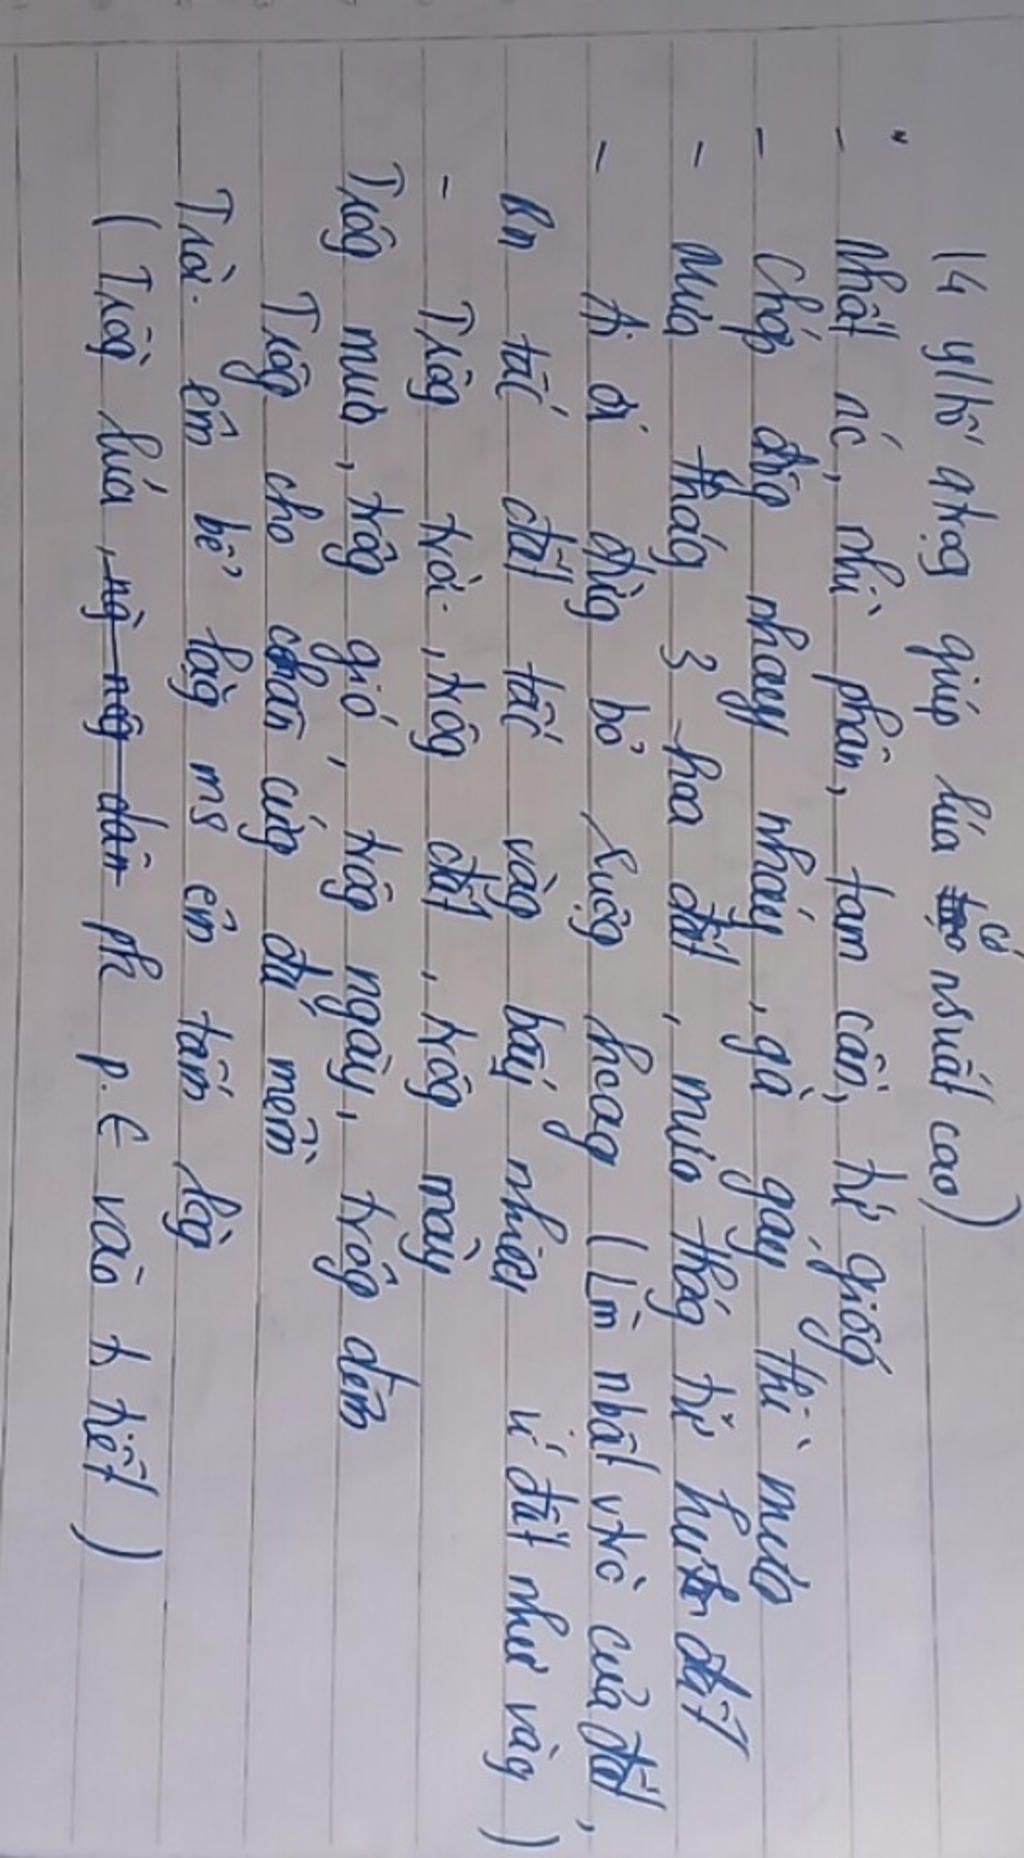 (4 y/tố qtrọg giúp lúa có nsuất cao)
- Nhất nc, nhì phân, tam cần, tứ giốg
- Chớp đôg nhay nháy, gà gáy thì mưa
- Mưa thág 3 hoa đất, mưa thág tư hư đất
- Ai ơi đừg bỏ ruộg hoag (Lm nhất vtrò của đất,
Bn tấc đất tấc vàg bấy nhiêu ví đất như vàg)
- Trôg trời, trôg đất, trôg mây
Trôg mưa, trôg gió, trôg ngày, trôg đêm
Trôg cho chân cứg đá mềm
Trời êm bể lặg ms êm tấm lòg
(Trồg lúa, ng nôg dân ph p.t vào t tiết)